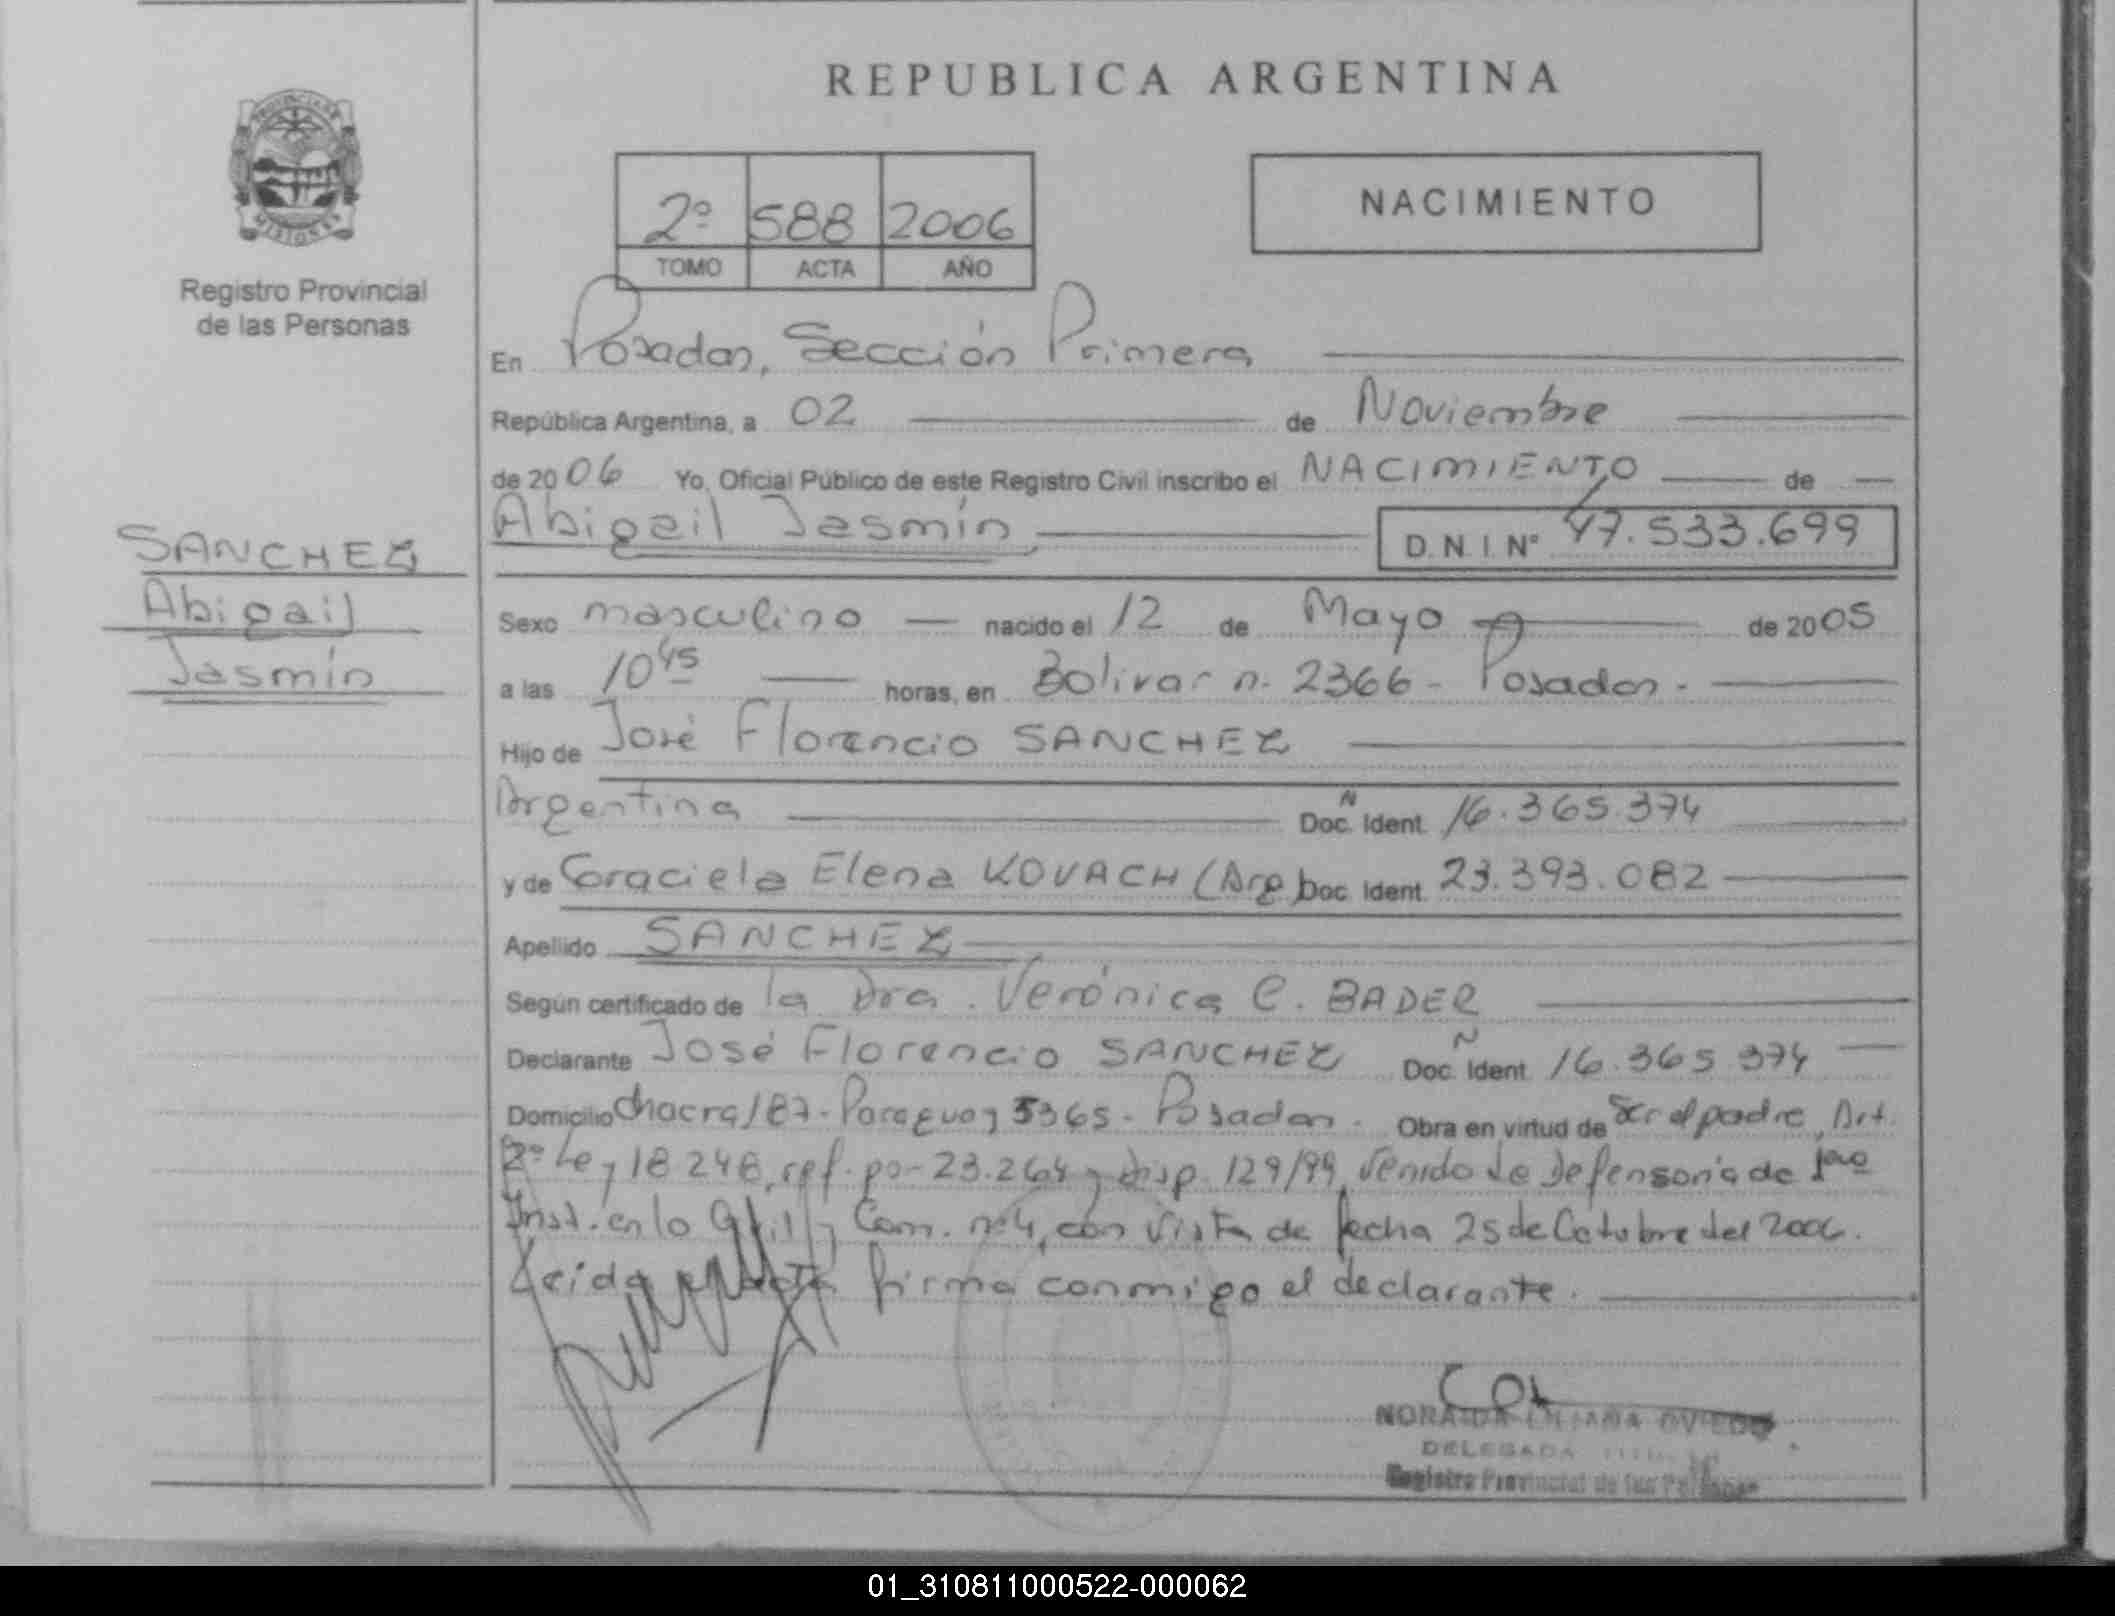 REPUBLICA ARGENTINA
PROVINCIA DE
MISIONES
Registro Provincial
de las Personas
2º 588 2006
TOMO ACTA AÑO
NACIMIENTO
En Posadas, Sección Primera
República Argentina, a 02 de Noviembre
de 2006 Yo, Oficial Público de este Registro Civil inscribo el NACIMIENTO de
Abigail Jasmín D.N.I.Nº 47.533.699
SANCHEZ
Abigail
Jasmín
Sexo masculino nacido el 12 de Mayo de 2005
a las 10 45 horas, en Bolivar n. 2366 - Posadas.
Hijo de José Florencio SANCHEZ
Argentina Doc. Ident. 16.365.374
y de Graciela Elena KOVACH (Arg) Doc. Ident. 23.393.082
Apellido SANCHEZ
Según certificado de la Dra. Verónica C. BADER
Declarante José Florencio SANCHEZ Doc. Ident. 16.365.374
Domicilio Chacra 187 - Paraguay 5365 - Posadas. Obra en virtud de ser el padre, Art.
2º Ley 18248, ref. por 23.264 y disp. 129/99, venido de Defensoría de 1ra
Inst. en lo Civil y Com. nº 4, con vista de fecha 25 de Octubre del 2006.
Leida el acta firma conmigo el declarante.
NORAIDA LILIANA OVIEDO
DELEGADA
Registro Provincial de las Personas
01_310811000522-000062